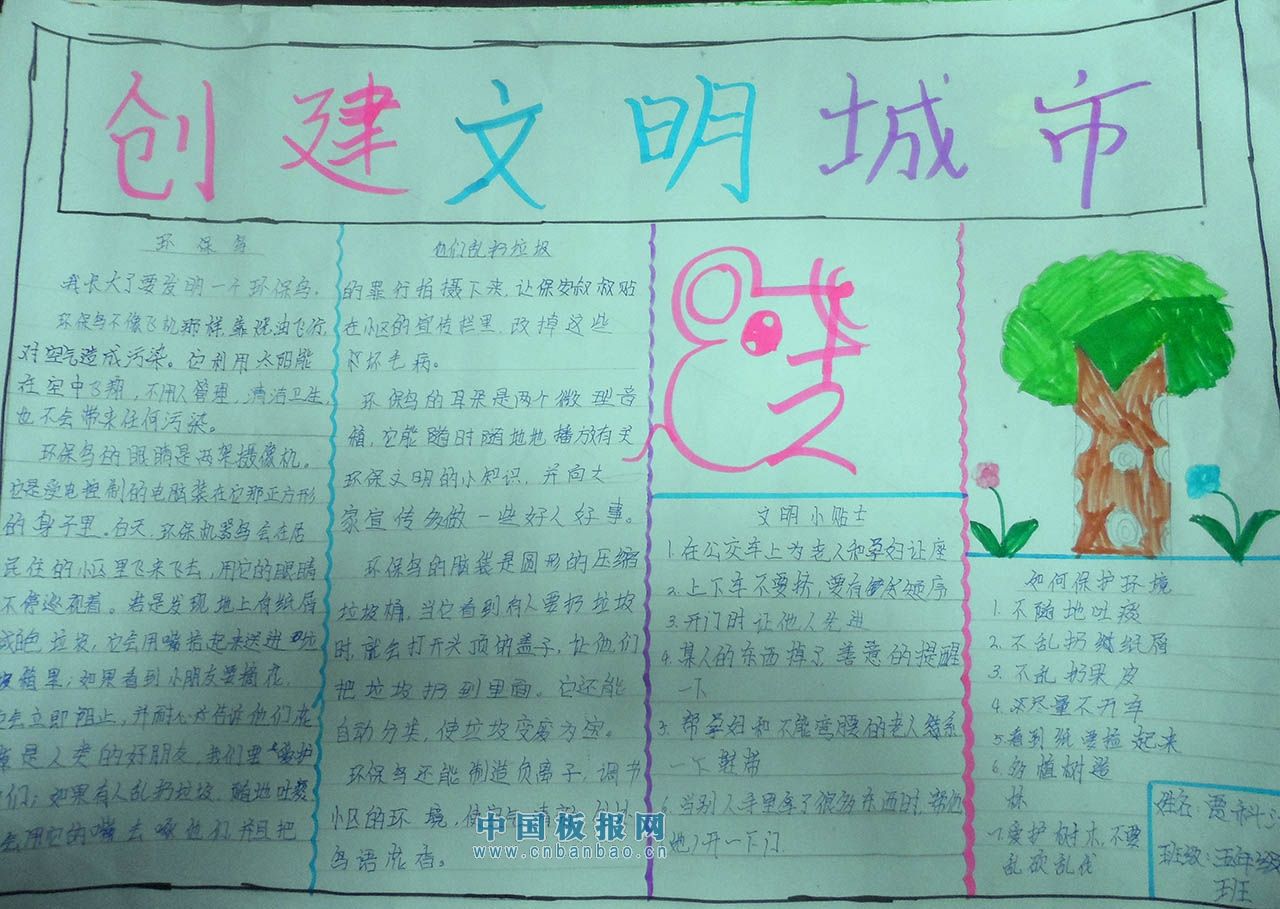 创建文明城市
环保鸟
我长大了要发明一个环保鸟。
环保鸟不像飞机那样靠耗油飞行,
对空气造成污染。它利用太阳能
在空中飞翔,不用人管理,清洁卫生
也不会带来任何污染。
环保鸟的眼睛是两架摄像机。
它是受电控制的电脑装在它那正方形
的身子里。白天,环保机器鸟会在居
民住的小区里飞来飞去,用它的眼睛
不停巡视着。若是发现地上有纸屑
垃圾,它会用嘴拾起来送进
箱里;如果看到小朋友要摘花,
会立即阻止,并耐心地告诉他们花
是人类的好朋友,我们要爱护
们;如果有人乱扔垃圾、随地吐痰
会用它的嘴去啄他们,并且把
他们乱扔垃圾
的罪行拍摄下来,让保安叔叔贴
在小区的宣传栏里,改掉这些
坏毛病。
环保鸟的耳朵是两个微型音
箱,它能随时随地地播放有关
环保文明的小知识,并向大
家宣传多做一些好人好事。
环保鸟的脑袋是圆形的压缩
垃圾桶,当它看到有人要扔垃圾
时,就会打开头顶的盖子,让他们
把垃圾扔到里面。它还能
自动分类,使垃圾变废为宝。
环保鸟还能制造负离子,调节
小区的环境,使空气清新
鸟语花香。
文明小贴士
1.在公交车上为老人和孕妇让座
2.上下车不要挤,要有秩序
3.开门时让他人先进
4.某人的东西掉了,善意的提醒
一下
5.帮孕妇和不能弯腰的老人系
一下鞋带
6.当别人手里拿了很多东西时,帮他
(她)开一下门
如何保护环境
1.不随地吐痰
2.不乱扔纸屑
3.不乱扔果皮
4.尽量不开车
5看到纸要捡起来
6.多植树造
林
7.爱护树木,不要
乱砍乱伐
姓名:贾科
班级:五年级
班
中国板报网
www.cnbanbao.cn